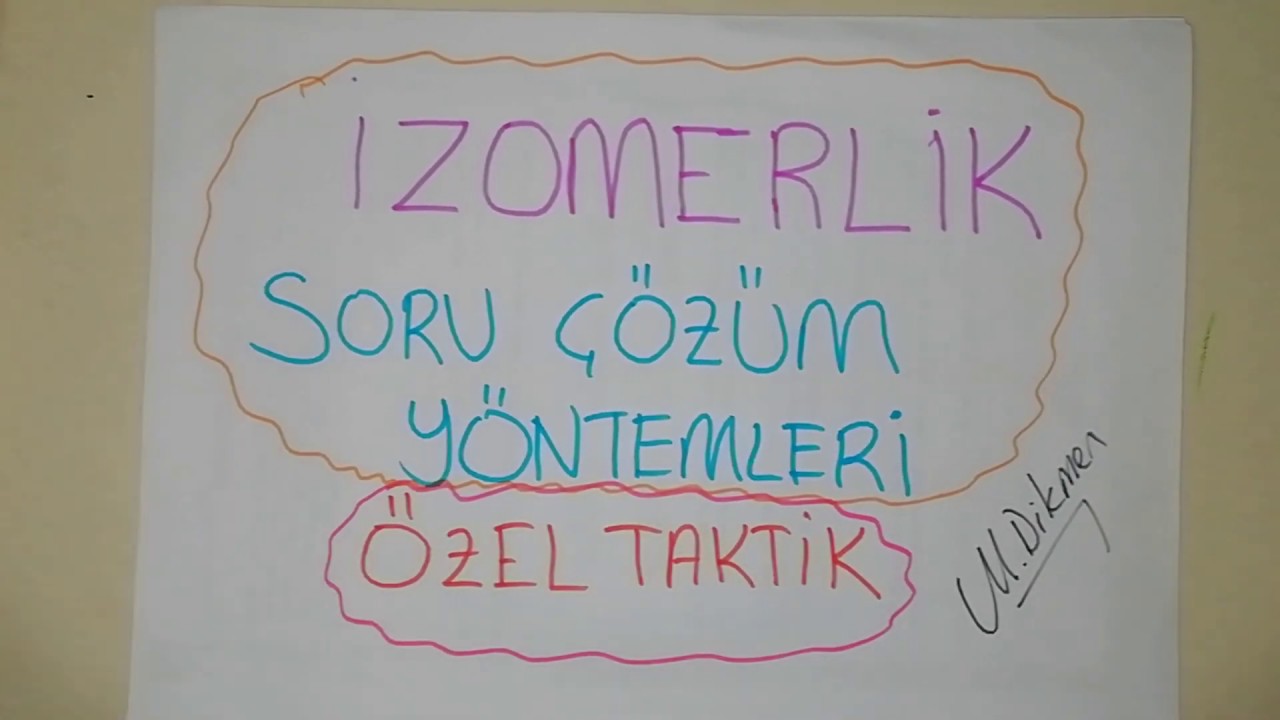 IZOMERLİK
SORU ÇÖZÜM
YÖNTEMLERİ
ÖZEL TAKTİK
M.Dikmen